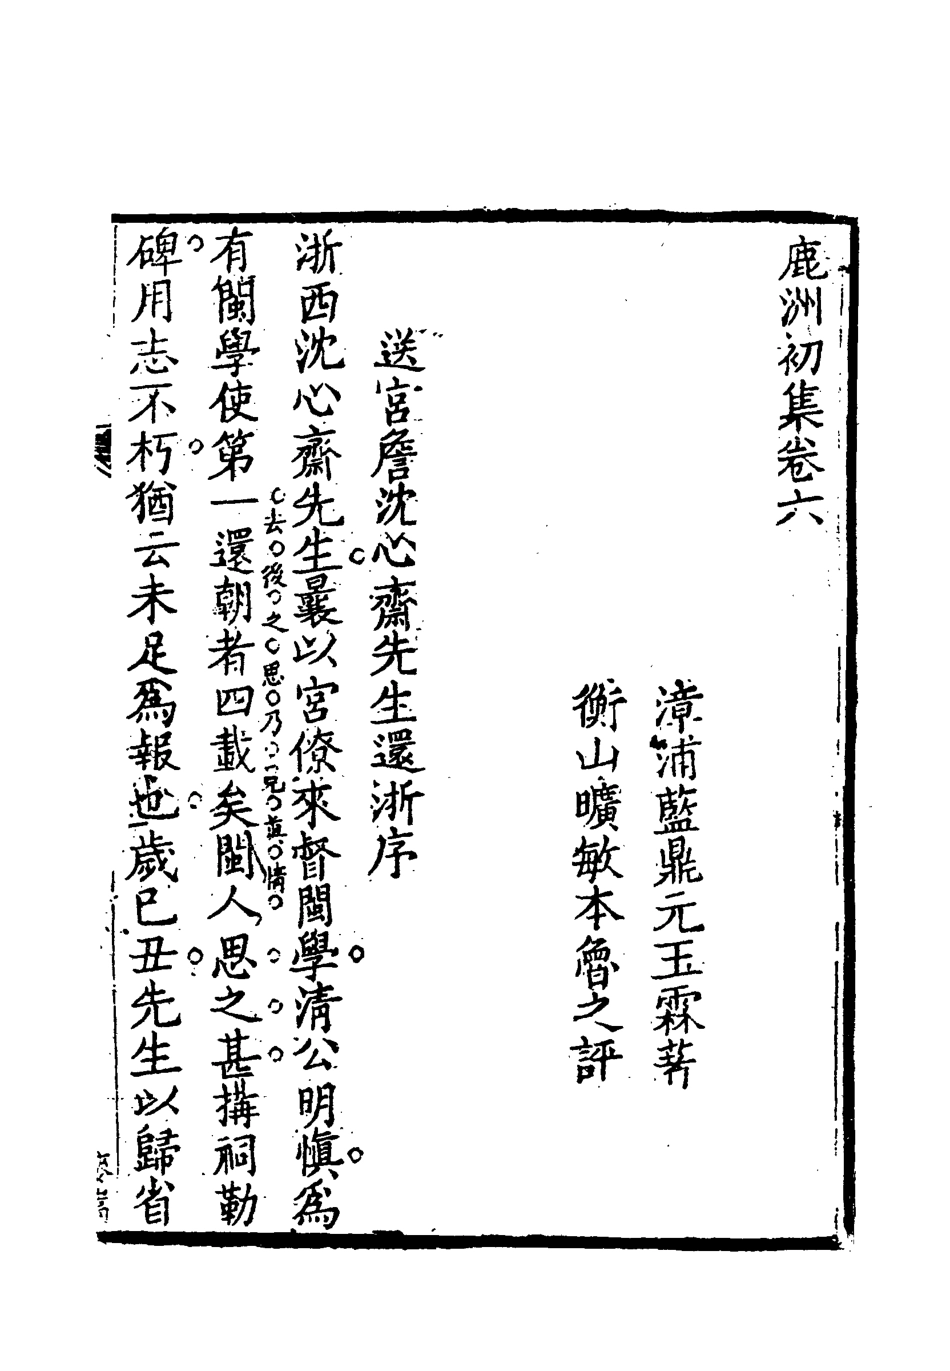 鹿洲初集卷六
漳浦藍鼎元玉霖著
衡山曠敏本魯之評
送宮詹沈心齋先生還浙序
浙西沈心齋先生曩以宮僚來督閩學清公明慎爲
有閩學使第一還朝者四載矣閩人思之甚搆祠勒
去後之思乃見眞情
碑用志不朽猶云未足爲報也歲已丑先生以歸省